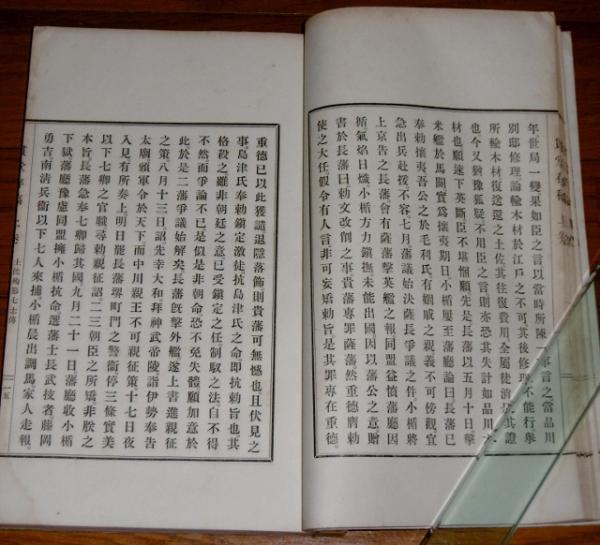 年世局一變果如臣之言以當時所陳一事言之當品川
別邸修理論輸木材於江戶之不可其後修理不能行舉
所輸木材復送還之土佐其往復費用全屬徒消其證
也今又猶豫狐疑不用臣之言則亦恐其失計如品川木
材也願速下英斷臣不堪慨願先是長藩以五月十日擊
米艦於馬關實爲攘夷期日小楯屢至藩廳論曰長藩已
奉勅攘夷吾公之於毛利氏有姻戚之親義不可傍觀宜
急出兵赴援不容七月藩議始決薩長爭議之件小楯將
上京告之長藩會有薩藩擊英艦之報同盟益憤藩廳因
循氣焰日熾小楯方力鎭撫未能出國因以藩公之意賜
書於長藩曰勅文改削之事貴藩專罪薩藩然重德膺勅
使之大任假令有人言非可妄矯勅旨是其罪專在重德
重德已以此獲譴退隱落飾則貴藩可無憾也且伏見之
事島津氏奉勅鎭定激徒抗島津氏之命卽抗勅旨也其
格殺之雖非朝廷之意已受鎭定之任制馭之法自不得
不然而爭論不已是似非朝命恐不免失體願加意於
此於是二藩爭議始解矣長藩旣擊外艦遂上書進親征
之策八月十三日詔先幸大和拜神武帝陵詣伊勢奉告
太廟頒軍令於天下而中川親王不可親征策十七日夜
入見有所奏上明日罷長藩堺町門之警衞停三條實美
以下七卿之官職尋勅親征詔二三朝臣之所矯非朕之
本旨長藩急奉七卿歸其國九月二十一日藩廳收小楯
下獄藩廳豫慮同盟擁小楯抗命選藩士長武技者藤岡
勇吉南清兵衞以下七人來捕小楯晨出調馬家人走報
土佐殉難七士傳
一五